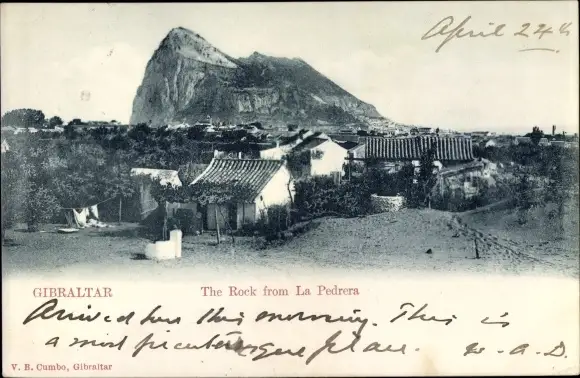 April 24th
GIBRALTAR The Rock from La Pedrera
Arrived here this morning. This is
a most picturesque place. W. A. D.
V. B. Cumbo, Gibraltar